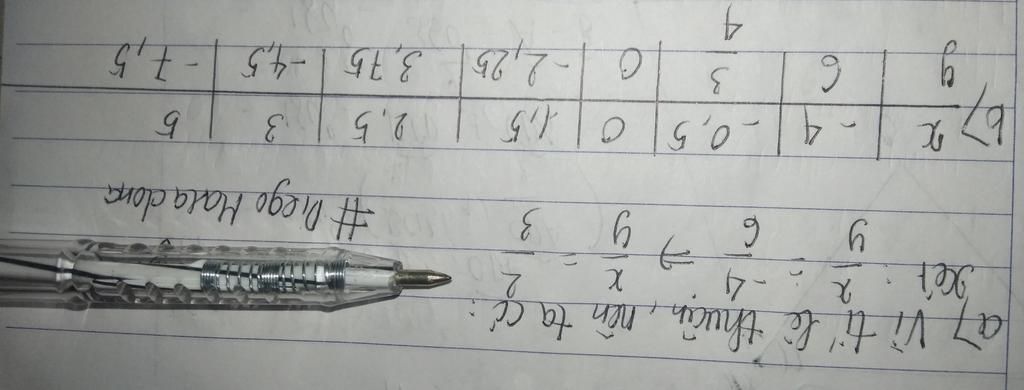 a) Vì tỉ lệ thuận, nên ta có:
Xét: x/y = -4/6 ⇒ x/y = 2/3
#Diego Maradona
b) x | -4 | -0,5 | 0 | 1,5 | 2,5 | 3 | 5
y | 6 | 3/4 | 0 | -2,25 | 3,75 | -4,5 | -7,5